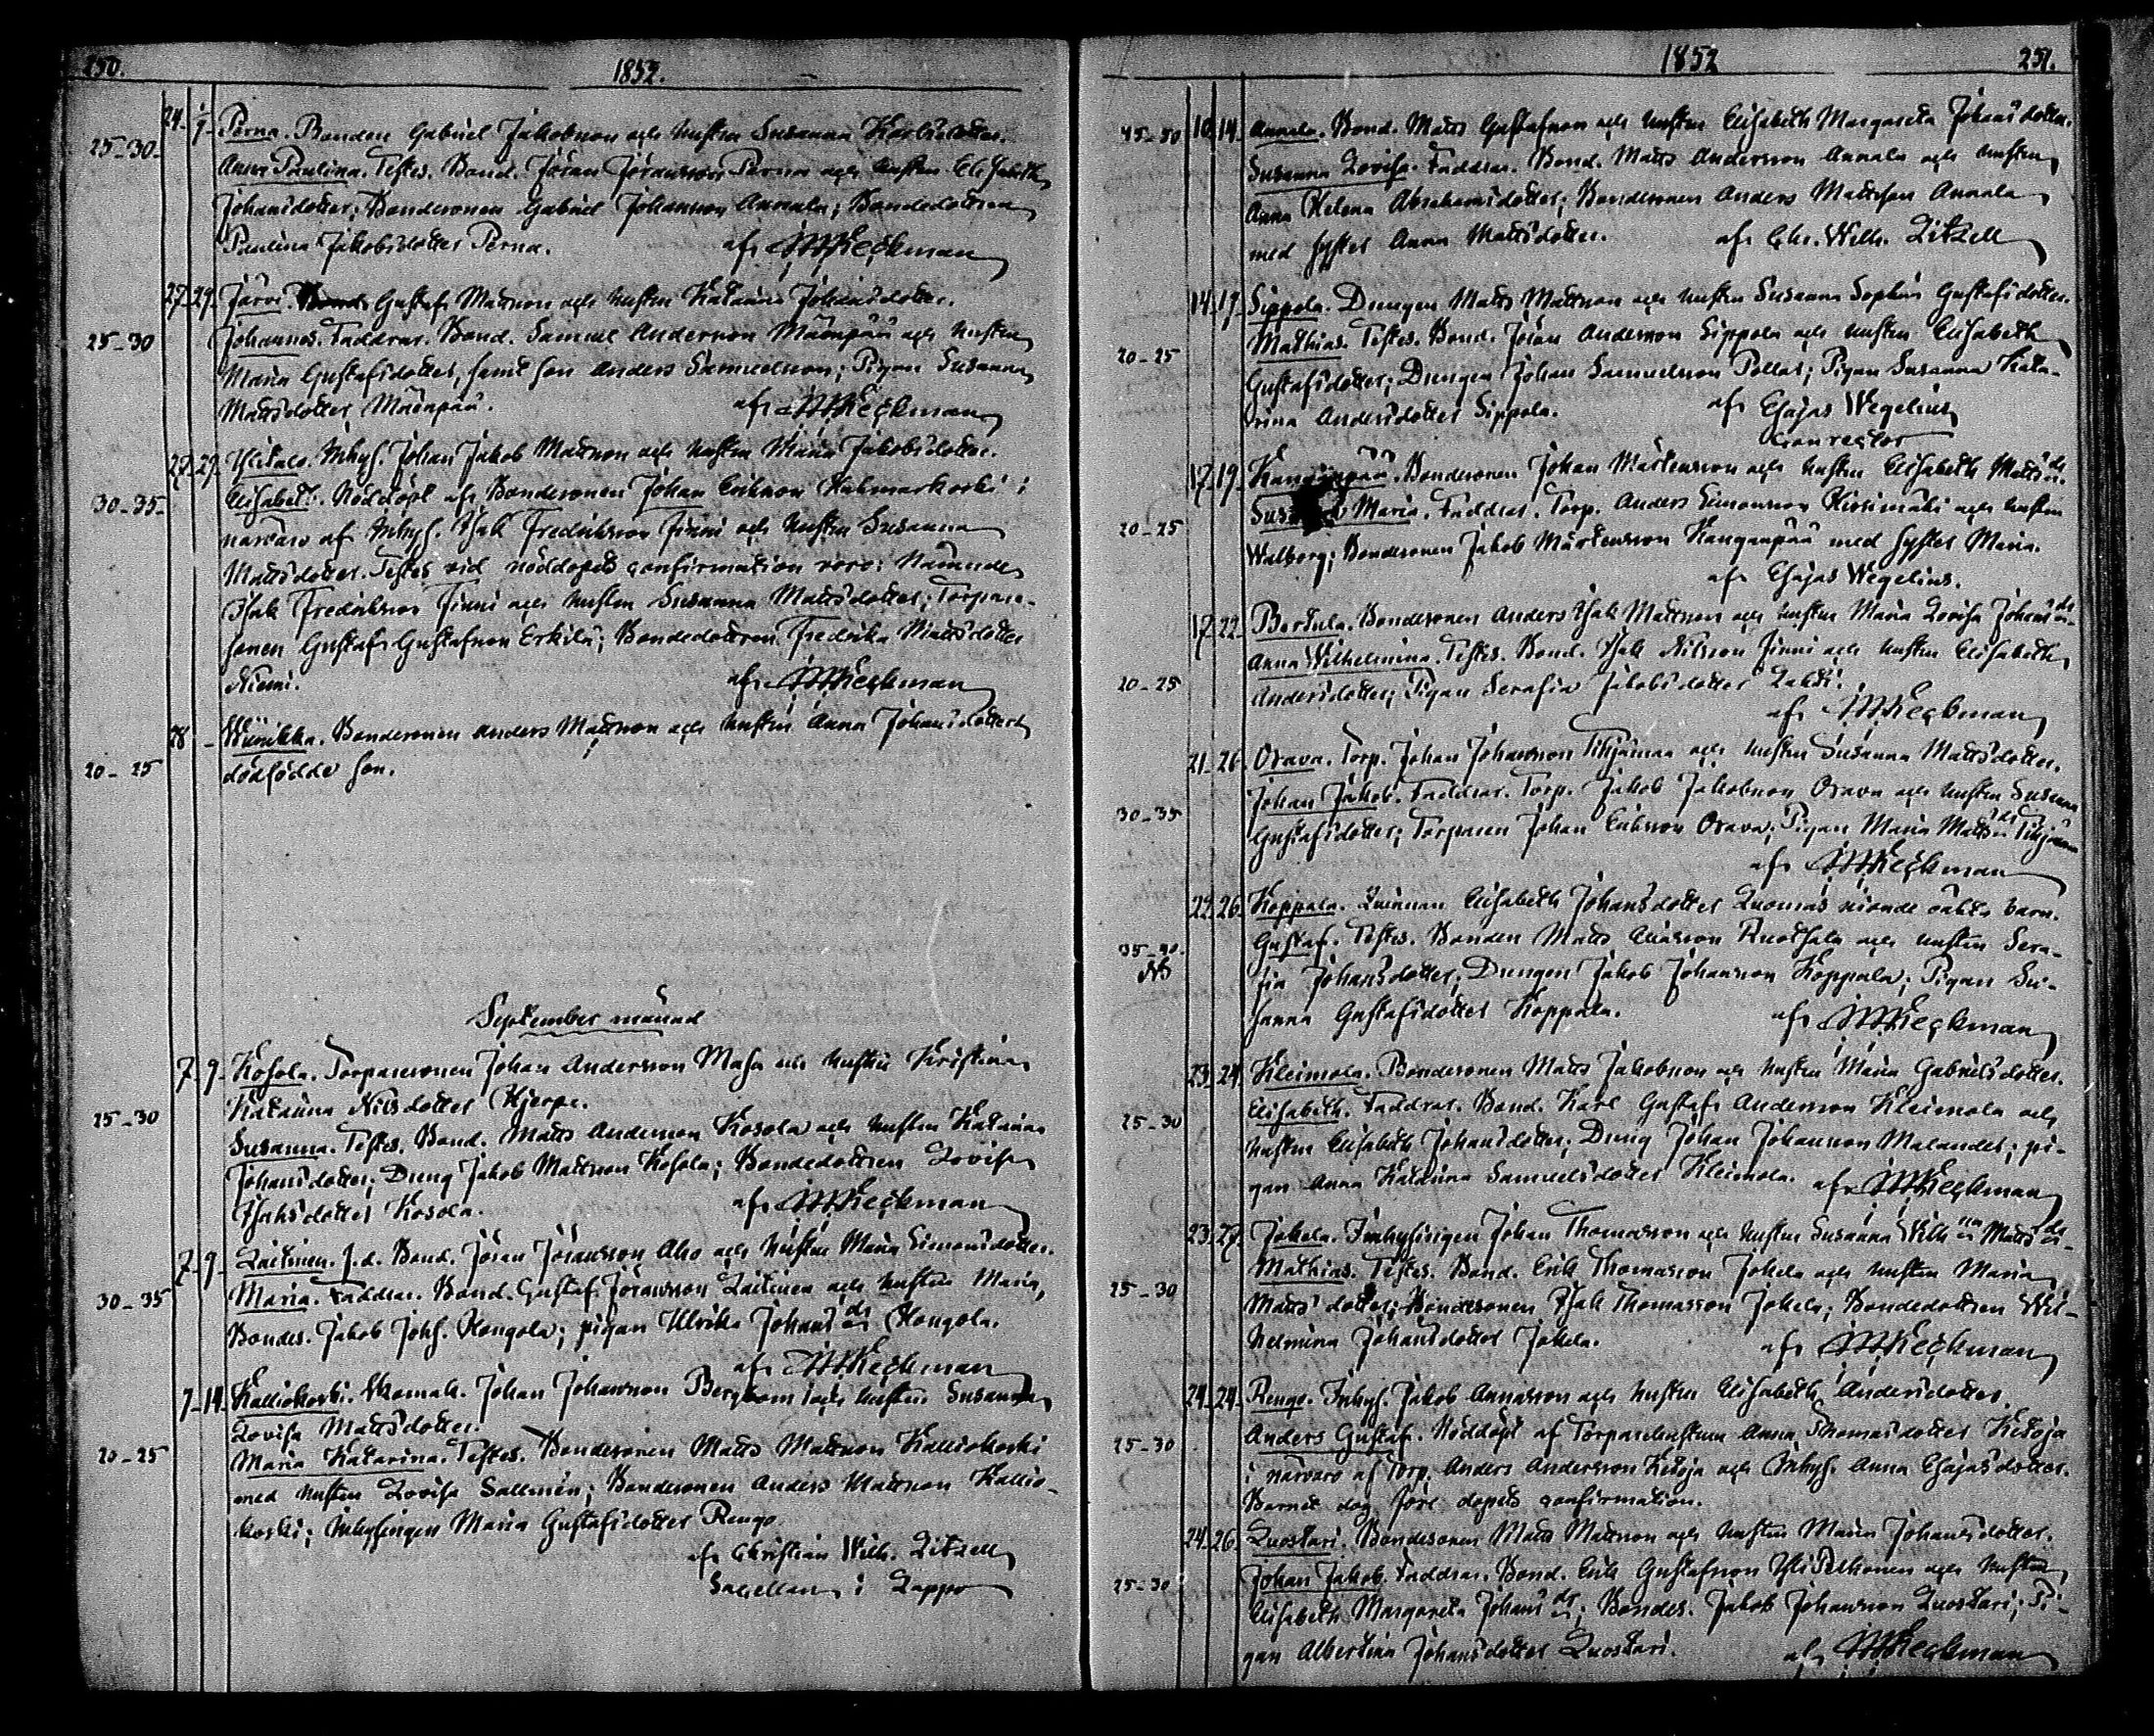 250.
1852.
24. 7. Perna. Bonden Gabriel Jakobson och hustru Susanna Karlsdotter.
25-30. Anna Paulina. Testes. Bond. Jöran Jöransson Perna och hustru Elisabeth
Johansdotter; Bondesonen Gabriel Johansson Annala; Bondedottren
Paulina Jakobsdotter Perna. af
27. 29. Järvi. Gustaf Mattsson och hustru Katarina Johansdotter.
25-30 Johannes. Faddrar. Bond. Samuel Andersson Mäenpää och hustru
Maria Gustafsdotter, samt son Anders Samuelsson; Pigan Susanna
Mattsdotter Mäenpää. af
27. 29. Ylitalo. Inhys. Johan Jakob Mattsson och hustru Maria Jakobsdotter.
30-35- Elisabeth. Nöddöpt af Bondesonen Johan Eriksson Huhmarkoski i
närvaro af Inhys. Isak Fredriksson Finni och hustru Susanna
Mattsdotter. Testes vid nöddopets confirmation voro: Nämnde
Isak Fredriksson Finni och hustru Susanna Mattsdotter; Torpare-
sonen Gustaf Gustafsson Erkilä; Bondedottren Fredrika Mattsdotter
Niemi. af
28 - Bondesonen Anders Mattsson och hustru Anna Johansdotters
20-25 dödfödde son.
September månad
7. 9. Kosola. Torparesonen Johan Andersson Masa och hustru Kristina
Katarina Nilsdotter Hjerpe.
25-30 Susanna. Testes. Bond. Matts Andersson Kosola och hustru Katarina
Johansdotter; Dreng Jakob Mattsson Kosola; Bondedottren Lovisa
Isaksdotter Kosola. af
7. 9. Laitinen. f.d. Bond. Jöran Jöransson Aho och hustru Maria Simonsdotter.
30-35 Maria. Faddrar. Bond. Gustaf Jöransson Laitinen och hustru Maria,
Bondes. Jakob Johs. Hongola; pigan Ulrika Johans dr Hongola.
af
7-14. Kalliokoski. Skomak. Johan Johansson Bergbom och hustru Susanna
Lovisa Mattsdotter.
20-25 Maria Katarina. Testes. Bondesonen Matts Mattsson Kalliokoski
med hustru Lovisa Sallmén; Bondesonen Anders Mattsson Kallio-
koski; Inhysingen Maria Gustafsdotter Rengo.
af Christian Wilh. Litzell
Sacellan i Lappo
1852
251.
45-50 10. 14. Annala. Bond. Matts Gustafsson och hustru Elisabeth Margareta Johansdotter.
Susanna Lovisa. Faddrar. Bond. Matts Andersson Annala och hustru
Anna Helena Abrahamsdotter; Bondesonen Anders Mattsson Annala
med syster Anna Mattsdotter. af Chr. Wilh. Litzell
14. 17. Sippola. Drengen Matts Mattsson och hustru Susanna Sophia Gustafsdotter.
20-25 Mathias. Testes. Bond. Jöran Andersson Sippola och hustru Elisabeth
Gustafsdotter; Drengen Johan Samuelsson Pollar; Pigan Susanna Kata-
rina Andersdotter Sippola. af Esajas Wegelius
Conrector
17. 19. Kanganpää. Bondesonen Johan Mårtensson och hustru Elisabeth Matts dr.
20-25 Maria. Faddrar. Torp. Anders Simonsson Hirsimäki och hustru
Walborg; Bondesonen Jakob Mårtensson Kanganpää med syster Maria.
af Esajas Wegelius.
17. 22. Bondesonen Anders Isak Mattsson och hustru Maria Lovisa Johans dr.
20-25 Anna Wilhelmina. Testes. Bond. Isak Nilsson Finni och hustru Elisabeth
Andersdotter; Pigan Serafia Jakobsdotter Lahti.
af
21. 26. Orava. Torp. Johan Johansson Tihjämaa och hustru Susanna Mattsdotter.
30-35 Johan Jakob. Faddrar. Torp. Jakob Jakobsson Orava och hustru Susanna
Gustafsdotter; Torparen Johan Eriksson Orava; Pigan Maria Matts dr
af
22. 26. Koppala. Quinnan Elisabeth Johansdotter Luomas oäkta barn.
35-40. Gustaf. Testes. Bonden Matts Eliasson Ruotsala och hustru Sera-
NB fia Johansdotter; Drengen Jakob Johansson Koppala; Pigan Su-
sanna Gustafsdotter Koppala. af
23. 24. Kleimola. Bondesonen Matts Jakobsson och hustru Maria Gabrielsdotter.
25-30 Elisabeth. Faddrar. Bond. Karl Gustaf Andersson Kleimola och
hustru Elisabeth Johansdotter; Dreng Johan Johansson Malander; pi-
gan Anna Katarina Samuelsdotter Kleimola. af
23. 27. Jokela. Inhysingen Johan Thomasson och hustru Susanna Wilh na Matts dr.
25-30 Mathias. Testes. Bond. Erik Thomasson Jokela och hustru Maria
Mattsdotter; Bondesonen Isak Thomasson Jokela; Bondedottren Wil-
helmina Johansdotter Jokela. af
24. 24. Rengo. Inhys. Jakob Annasson och hustru Elisabeth Andersdotter.
25-30 Anders Gustaf. Nöddöpt af Torparehustrun Anna Thomasdotter Ketoja
i närvaro af Torp. Anders Andersson Ketoja och Inhys. Anna Esajasdotter.
Barnet dog före dopets confirmation.
24. 26. Luostari. Bondesonen Matts Mattsson och hustru Maria Johansdotter.
25-30 Johan Jakob. Faddrar. Bond. Erik Gustafsson Yli Pelkonen och hustru
Elisabeth Margareta Johans dr; Bondes. Jakob Johansson Luostari; Pi-
gan Albertina Johansdotter Luostari. af